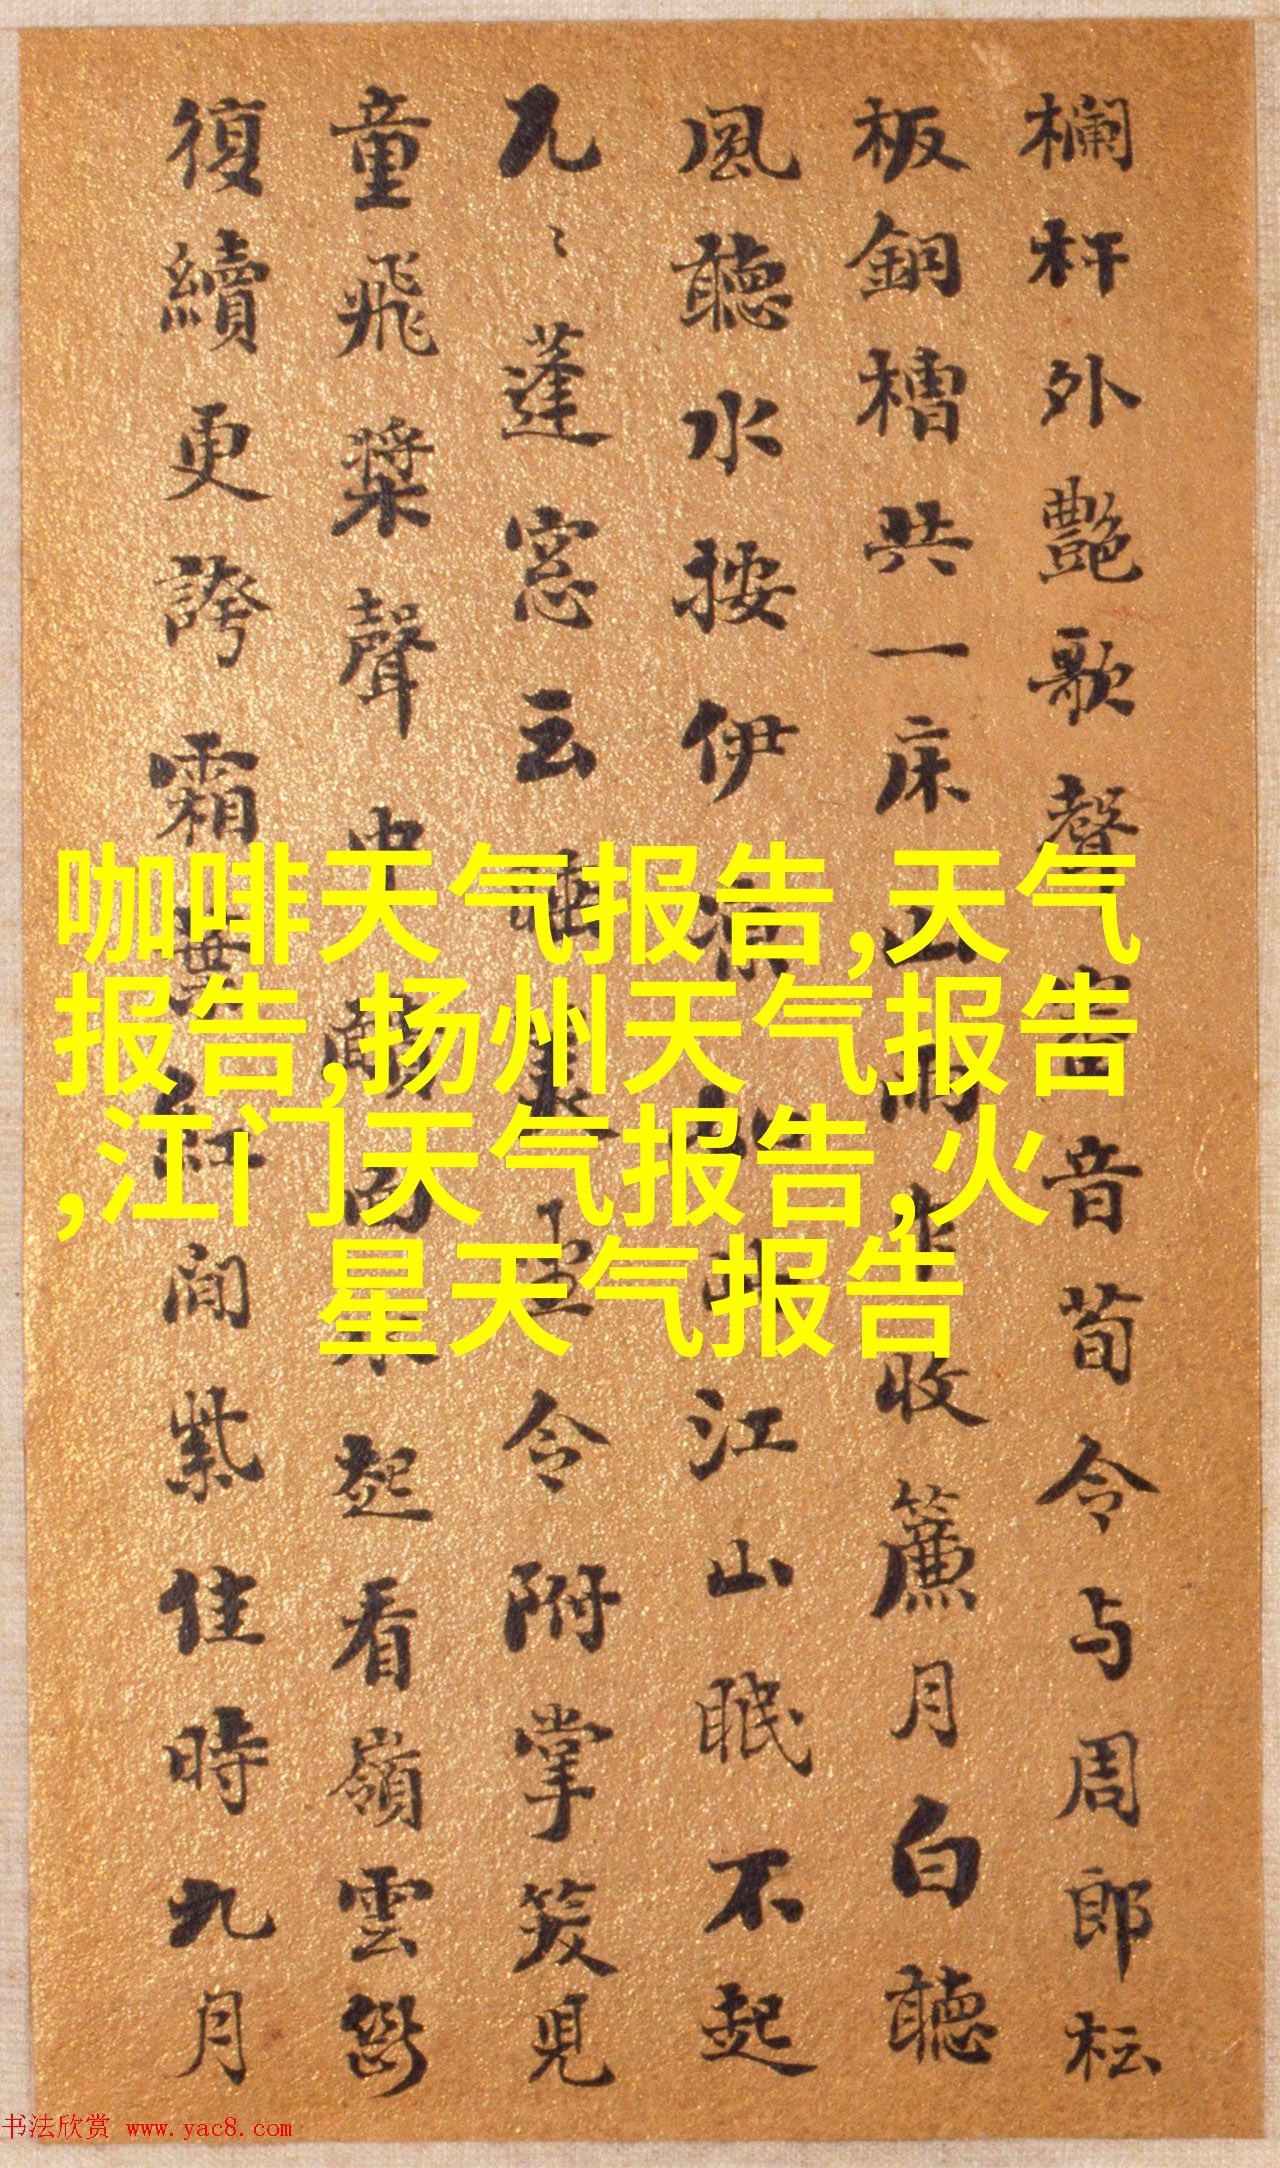 欄杆外艷歌聲
音荀令与周郎松
板銅槽共一床山雨
收簾月白聽
風聽水按伊
江山眠不起
凡〻蓬窓云睡
令附掌笑見
童飛槳聲中
起看嶺雲
復續更誇霜葉紅間紫佳時九月
咖啡天气报告,天气
报告,扬州天气报告
,江门天气报告,火
星天气报告
书法欣赏 www.yac8.com